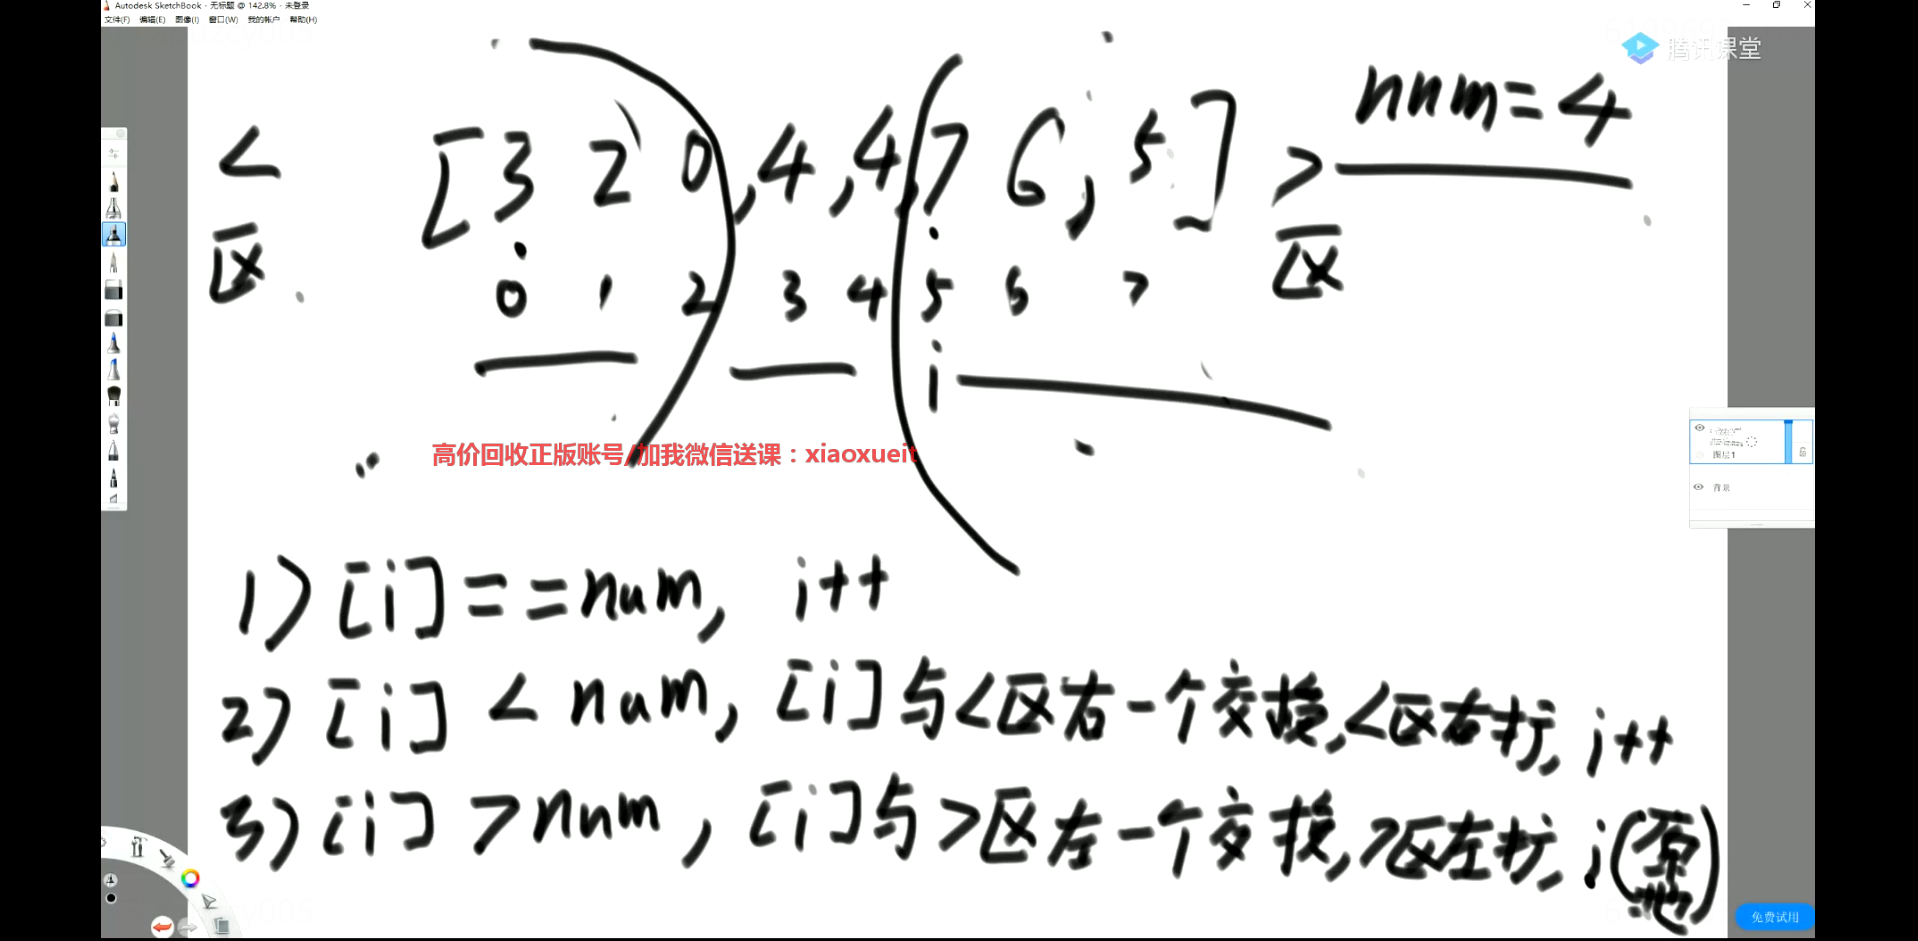 Autodesk SketchBook - 无标题 @ 142.8% - 未登录
文件(F) 编辑(E) 图像(I) 窗口(W) 我的帐户 帮助(H)
腾讯课堂
num=4
< [3 2 0,4,4,7 6,5] >
区 区
0 1 2 3 4 5 6 7
i
图层1
高价回收正版账号/加我微信送课：xiaoxueit
背景
1) [i]==num, i++
2) [i] < num, [i]与<区右一个交换,<区右扩, i++
3) [i] >num, [i]与>区左一个交换,>区左扩, i(原地)
免费试用